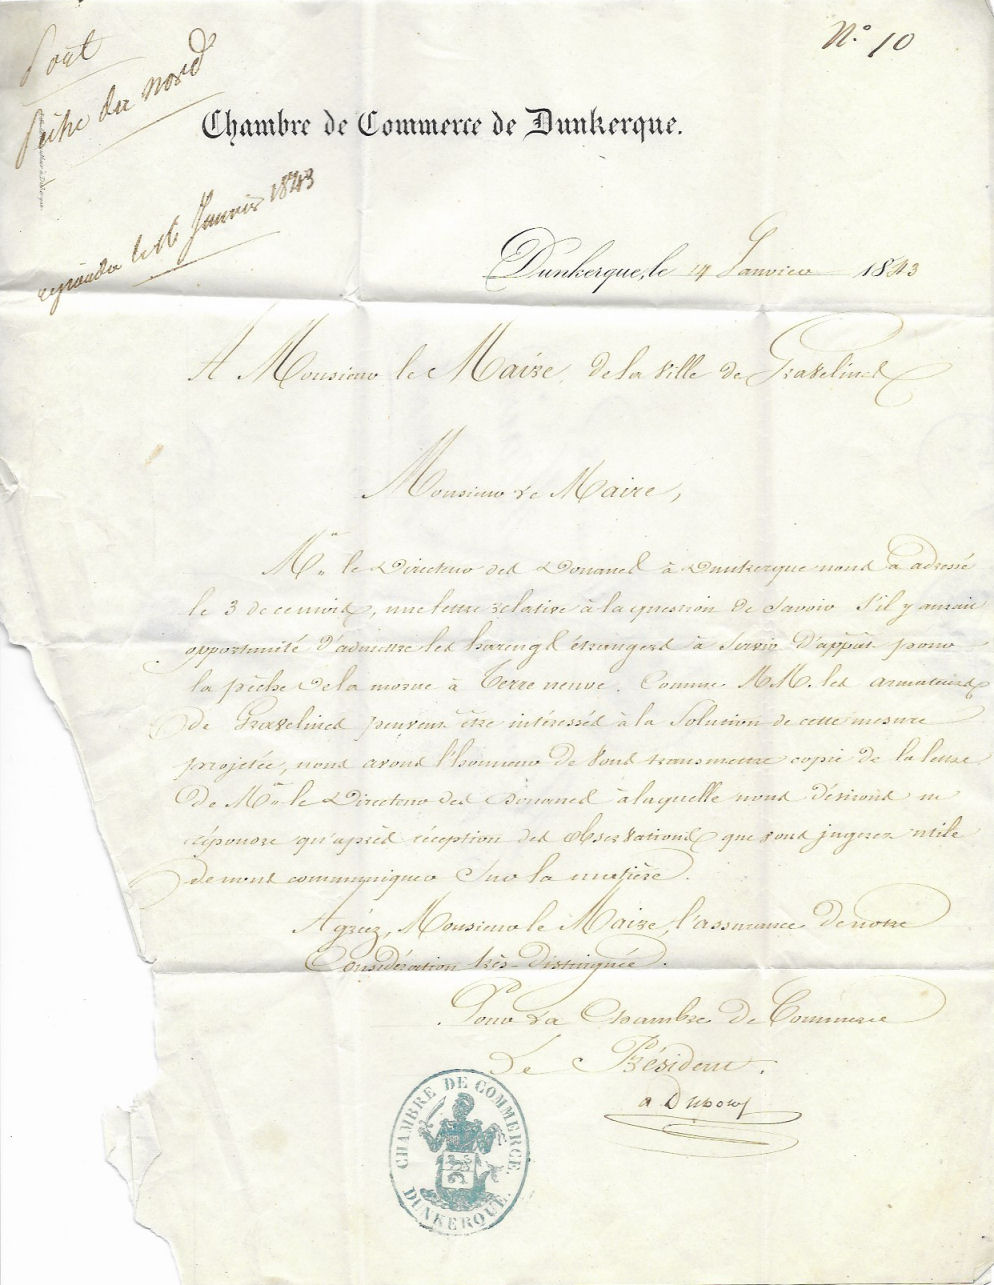 N° 10
Port
Pêche du nord
Chambre de Commerce de Dunkerque.
répondu le 16 Janvier 1843
Dunkerque, le 14 Janvier 1843
A Monsieur le Maire de la ville de Gravelines
Monsieur le Maire,
Mr. le Directeur des Douanes à Dunkerque nous a adressé
le 3 de ce mois, une lettre relative à la question de savoir s'il y aurait
opportunité d'admettre les harengs étrangers à servir d'appât pour
la pêche de la morue à Terre neuve. Comme MM. les armateurs
de Gravelines peuvent être intéressés à la solution de cette mesure
projetée, nous avons l'honneur de vous transmettre copie de la lettre
de Mr. le Directeur des Douanes à laquelle nous désirons ne
répondre qu'après réception des observations que vous jugerez utile
de nous communiquer sur la matière.
Agréez, Monsieur le Maire, l'assurance de notre
Considération très-distinguée.
Pour la Chambre de Commerce
Le Président.
CHAMBRE DE COMMERCE.
DUNKERQUE.